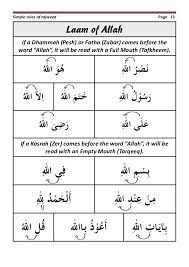 Simple rules of tajweed Page 13
Laam of Allah
If a Dhammah (Pesh) or Fatha (Zabar) comes before the
word "Allah", it will be read with a Full Mouth (Tafkheem).
نَصْرُ اللّٰهِ هُوَ اللّٰهُ
رَسُوْلُ اللّٰهِ خَتَمَ اللّٰهُ اِلاَّ اللّٰهُ
عَلَى اللّٰهِ رَضِىَ اللّٰهُ
If a Kasrah (Zer) comes before the word "Allah", it will be
read with an Empty Mouth (Tarqeeq).
بِسْمِ اللّٰهِ فِى اللّٰهِ
مِنْ عِنْدِ اللّٰهِ اَلْحَمْدُ لِلّٰهِ
بِآيَاتِ اللّٰهِ اَعُوْذُ بِاللّٰهِ قُلِ اللّٰهُ